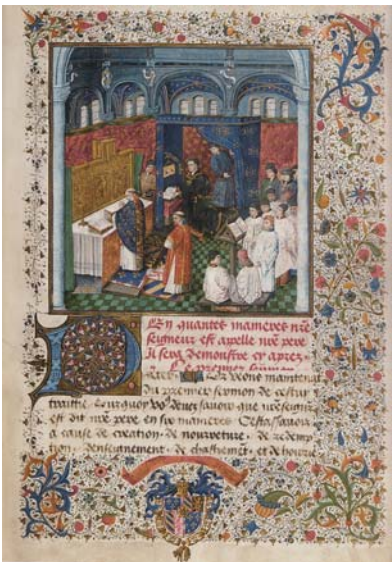 En quantes manieres nre
seigneur est apelle nre pere
Il sera demonstre cy aprez.
Le premier
maintenat
du premier sermon de cestui
traittie. Pourquoy vo9 deuez sauoir que nreseigne
est dit nre pere en six manieres. Cestassauoir
a cause de creation. de nourreture. de redemp
tion. denseignement. de chastiement. et de